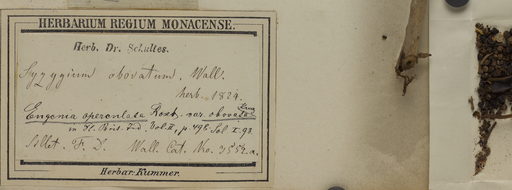 HERBARIUM REGIUM MONACENSE.
Herb. Dr. Schultes.
Syzygium obovatum. Wall.
herb. 1824.
Eugenia operculata Roxb. var. obovata
in Fl. Brit. Ind. Vol. II, p. 498.
F. D. Wall. Cat. Nro. 3552.a.
Herbar. Kummer.